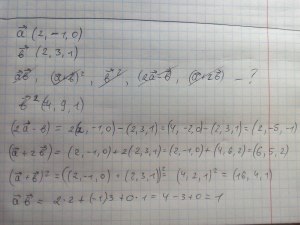 a⃗ (2, -1, 0)
b⃗ (2, 3, 1)
a⃗b⃗, (a⃗+b⃗)², a⃗², (2a⃗-b⃗), (a⃗+2b⃗) - ?
b⃗² (4, 9, 1)
(2a⃗-b⃗) = 2(2, -1, 0) - (2, 3, 1) = (4, -2, 0) - (2, 3, 1) = (2, -5, -1)
(a⃗+2b⃗) = (2, -1, 0) + 2(2, 3, 1) = (2, -1, 0) + (4, 6, 2) = (6, 5, 2)
(a⃗+b⃗)² = ((2, -1, 0) + (2, 3, 1))² = (4, 2, 1)² = (16, 4, 1)
a⃗b⃗ = 2·2 + (-1)3 + 0·1 = 4-3+0 = 1